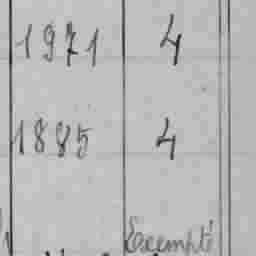 1971 4
1885 4
Exempté